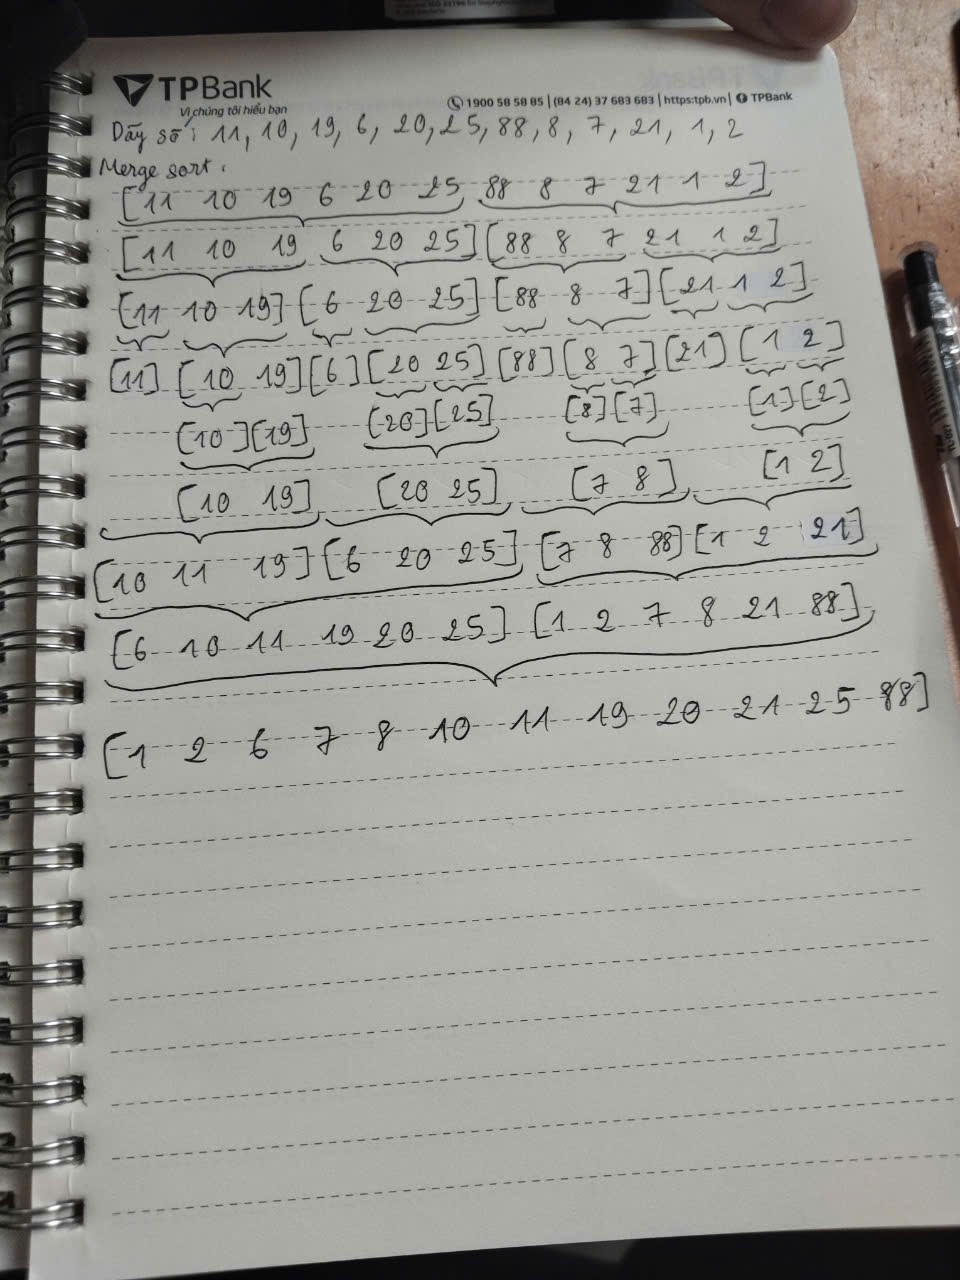 TPBank
Vì chúng tôi hiểu bạn
1900 58 58 85 | (84 24) 37 683 683 | https:tpb.vn | TPBank
Dãy số: 11, 10, 19, 6, 20, 25, 88, 8, 7, 21, 1, 2
Merge sort:
[11 10 19 6 20 25 88 8 7 21 1 2]
[11 10 19 6 20 25] [88 8 7 21 1 2]
[11 10 19] [6 20 25] [88 8 7] [21 1 2]
[11] [10 19] [6] [20 25] [88] [8 7] [21] [1 2]
[10] [19] [20] [25] [8] [7] [1] [2]
[10 19] [20 25] [7 8] [1 2]
[10 11 19] [6 20 25] [7 8 88] [1 2 21]
[6 10 11 19 20 25] [1 2 7 8 21 88]
[1 2 6 7 8 10 11 19 20 21 25 88]